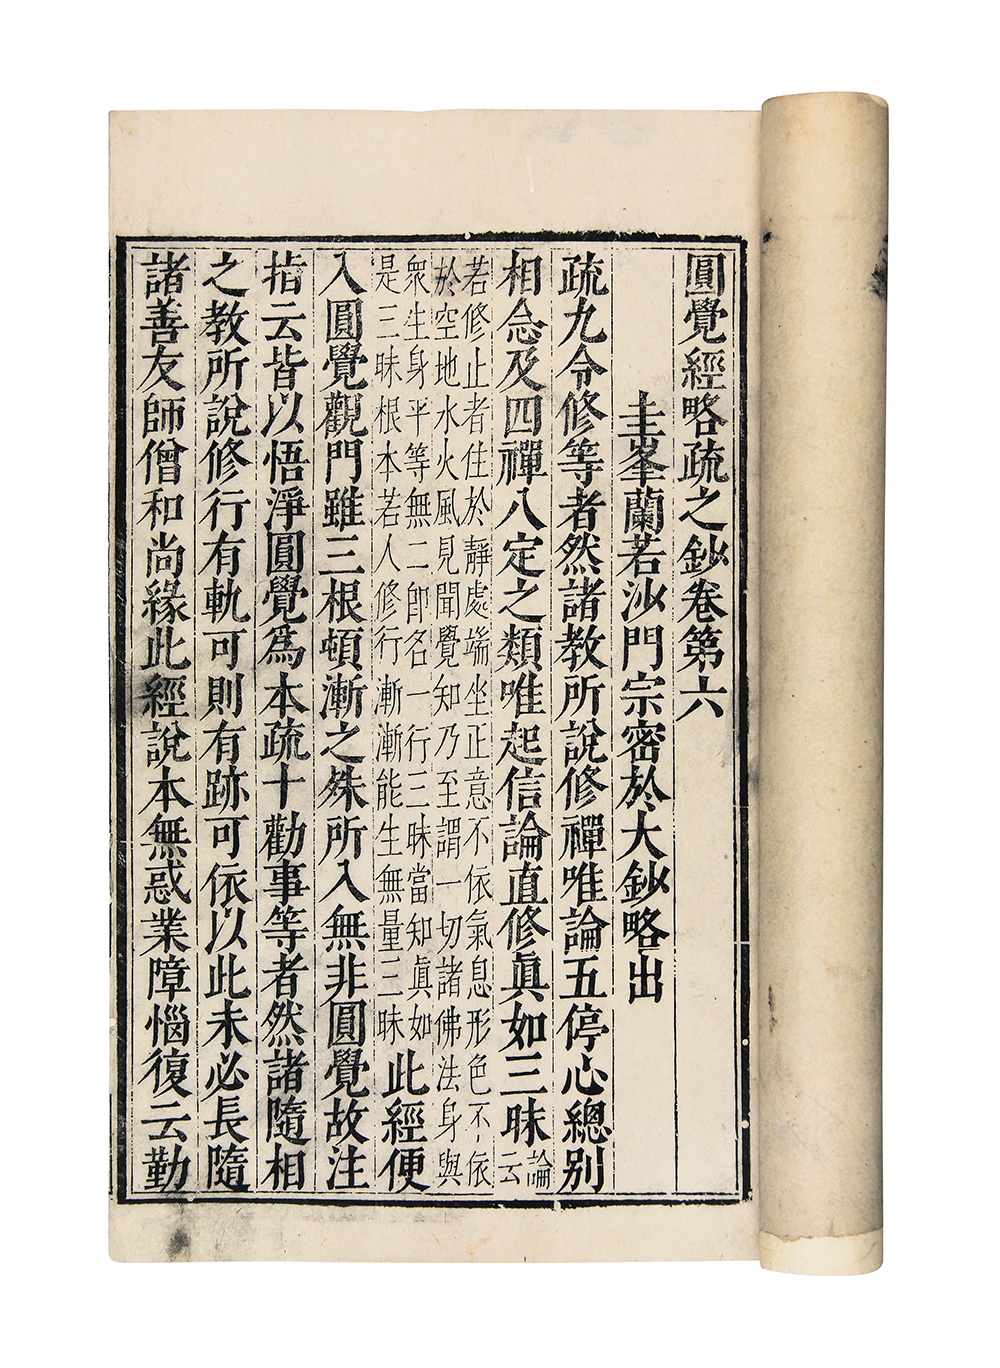 圓覺經略疏之鈔卷第六
圭峯蘭若沙門宗密於大鈔略出
疏九令修等者然諸教所說修禪唯論五停心總別
相念及四禪八定之類唯起信論直修眞如三昧論云
若修止者住於靜處端坐正意不依氣息形色不依
於空地水火風見聞覺知乃至謂一切諸佛法身與
眾生身平等無二即名一行三昧當知眞如
是三昧根本若人修行漸漸能生無量三昧此經便
入圓覺觀門雖三根頓漸之殊所入無非圓覺故注
指云皆以悟淨圓覺爲本疏十勸事等者然諸隨相
之教所說修行有軌可則有跡可依以此未必長隨
諸善友師僧和尚緣此經說本無惑業障惱復云勤